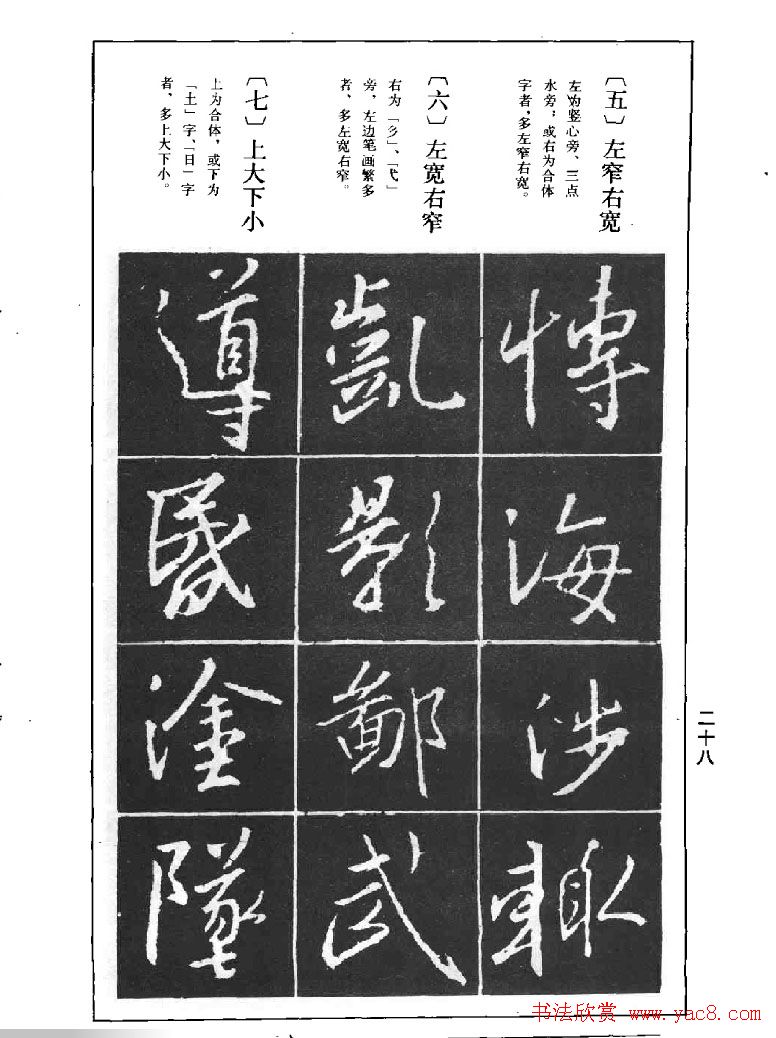 〔五〕左窄右宽
左为竖心旁、三点
水旁；或右为合体
字者，多左窄右宽。
海
涉
〔六〕左宽右窄
右为「彡」、「弋」
旁，左边笔画繁多
者，多左宽右窄。
凱
影
鄙
武
〔七〕上大下小
上为合体，或下为
「土」字、「日」字
者，多上大下小。
導
塗
墜
二十八
书法欣赏 www.yac8.com